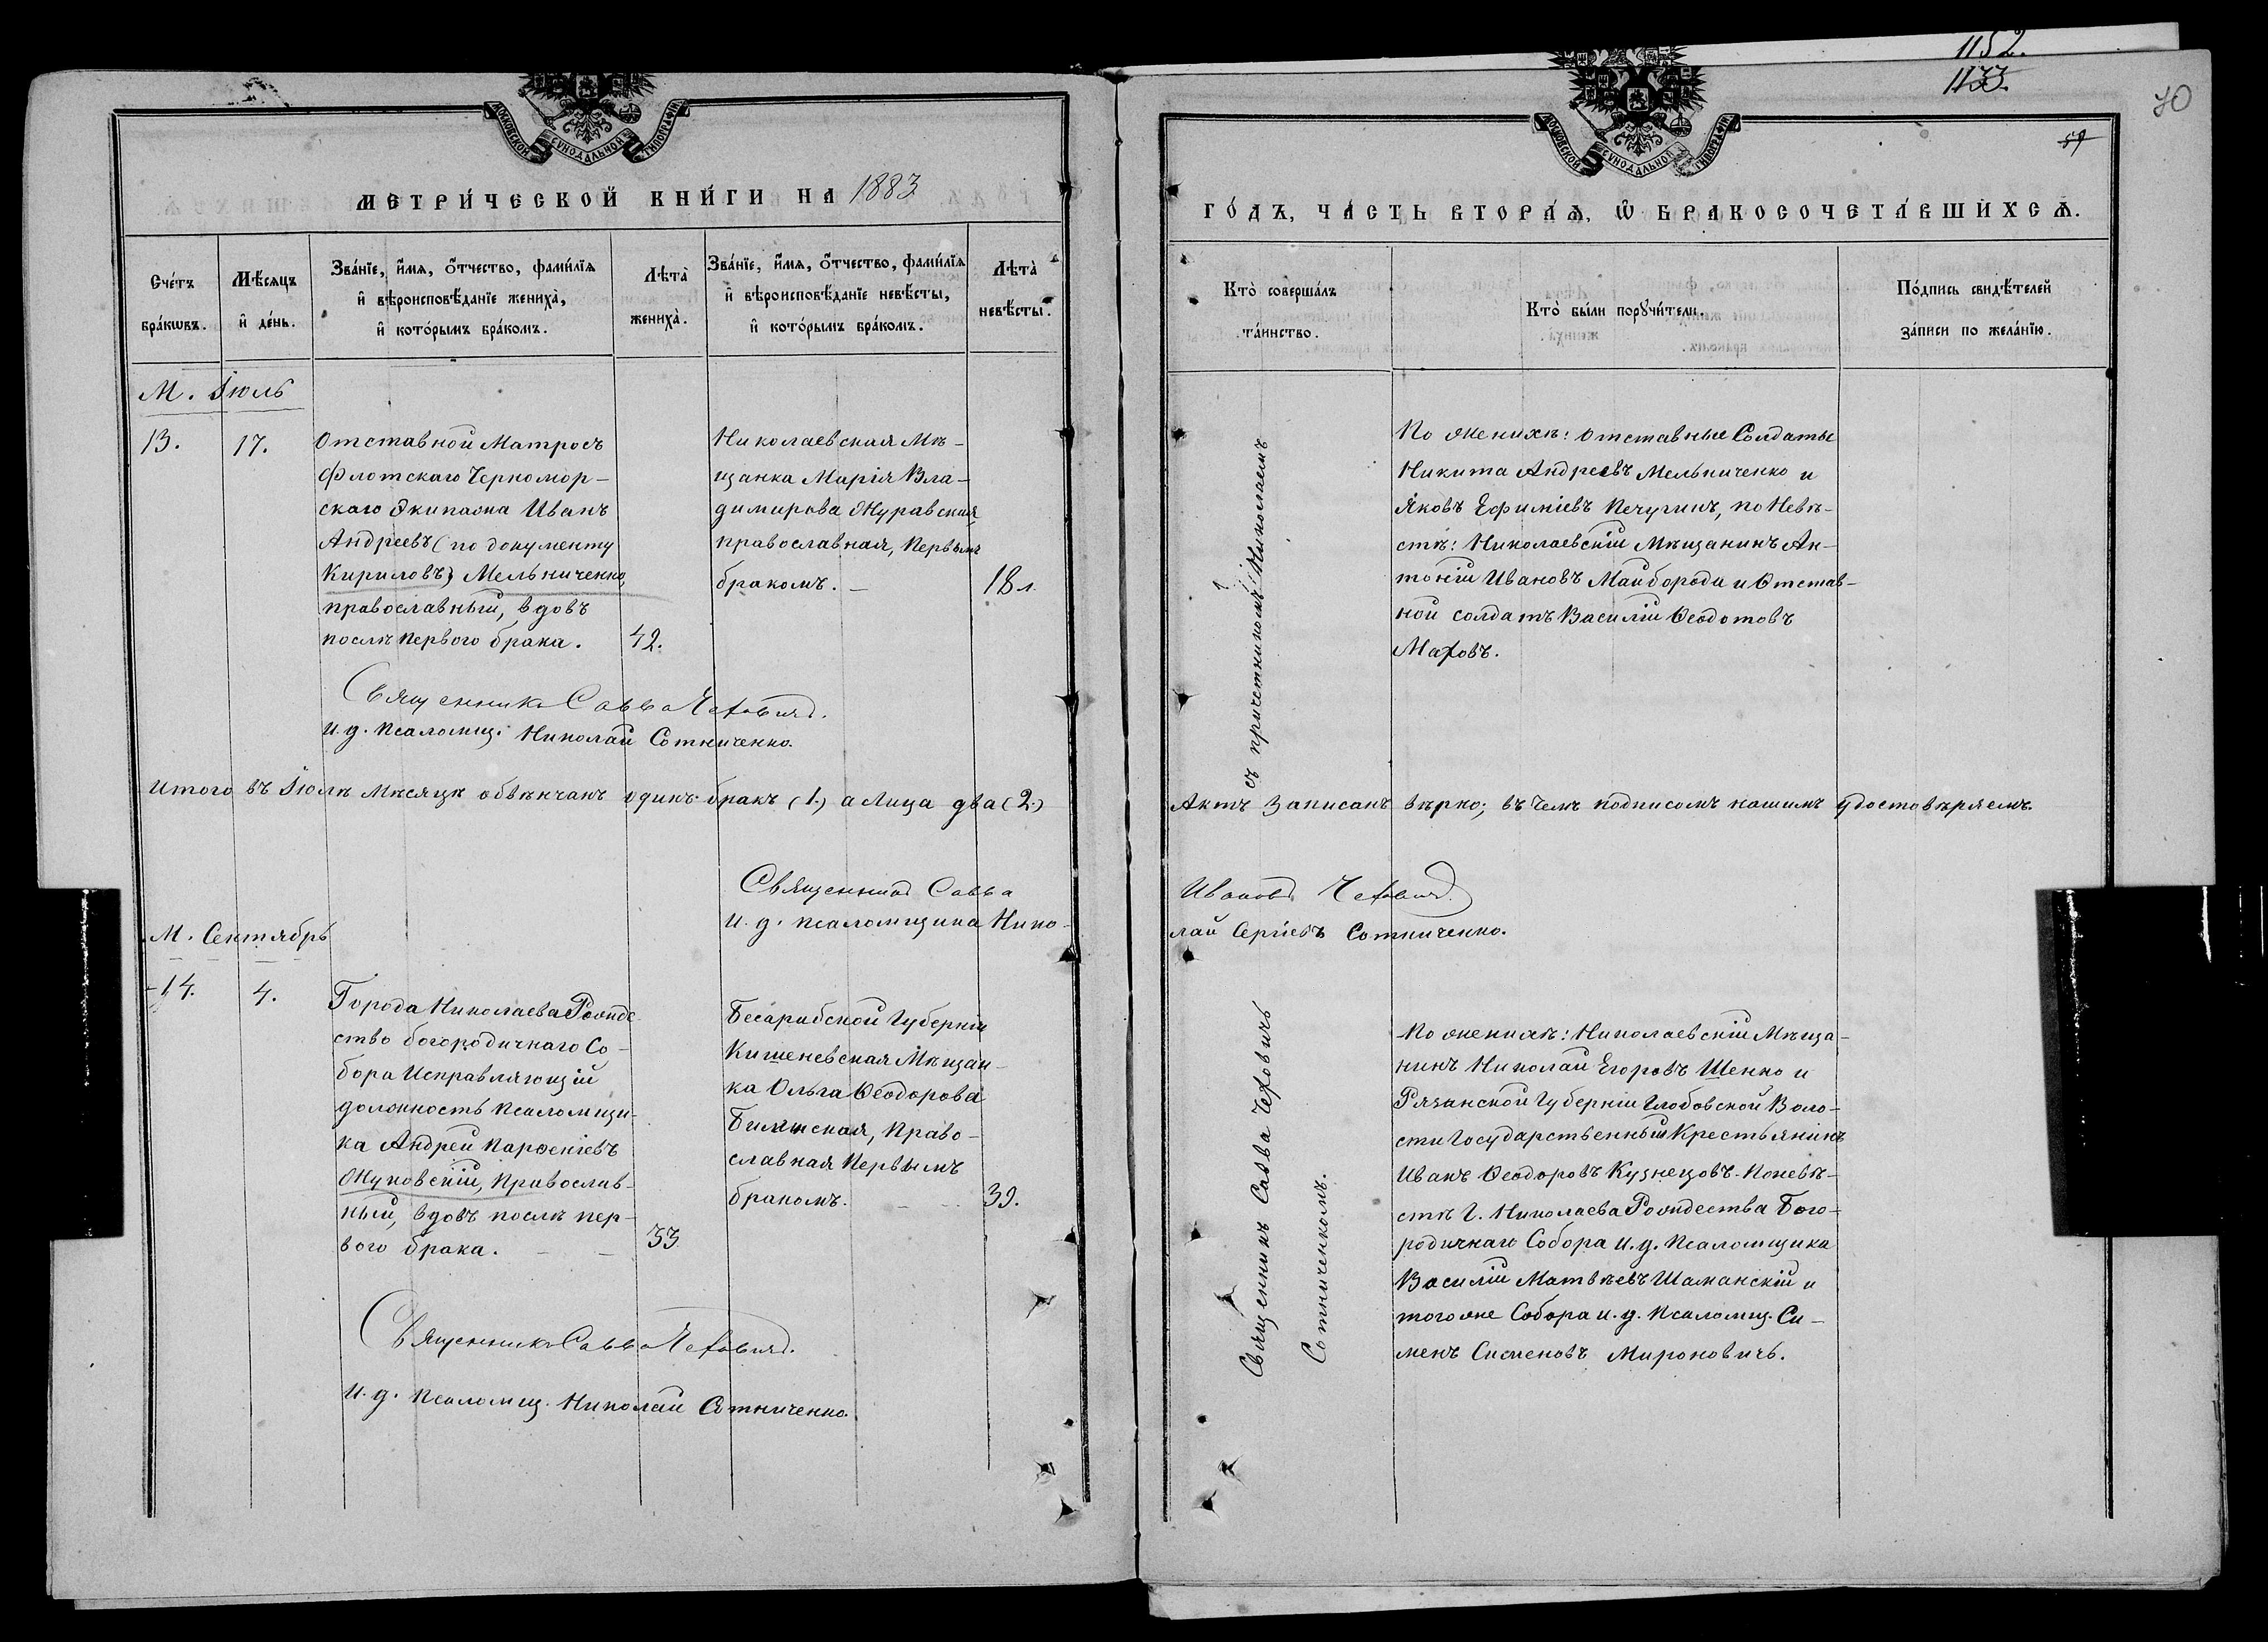 1152.
1133.
70
59
МОСКОВСКОЙ СѴНОДАЛЬНОЙ ТИПОГРАФІИ
МОСКОВСКОЙ СѴНОДАЛЬНОЙ ТИПОГРАФІИ
МЕТРИ́ЧЕСКОЙ КНИ́ГИ НА 1883
ГО́ДЪ, ЧА́СТЬ ВТОРА́Ѧ, Ѽ БРАКОСОЧЕТА́ВШИХСѦ.
Сче́тъ
бра́кѡвъ.
Мѣ́сяцъ
и҆ де́нь.
Зва́нїе, и҆́мѧ, о҆́тчество, фами́лїѧ
и҆ вѣроисповѣ́данїе жениха̀,
и҆ кото́рымъ бра́комъ.
Лѣта̀
жениха̀.
Зва́нїе, и҆́мѧ, о҆́тчество, фами́лїѧ
и҆ вѣроисповѣ́данїе невѣ́сты,
и҆ кото́рымъ бра́комъ.
Лѣта̀
невѣ́сты.
Кто̀ соверша́лъ
та́инство.
Кто̀ бы́ли порꙋчи́тели.
По́дпись свидѣ́телей
за́писи по жела́нїю.
М. Іюль
13.
17.
Отставной Матросъ
флотскаго Черномор-
скаго Экипажа Иванъ
Андреевъ (по документу
Кириловъ) Мельниченко,
православный, вдовъ
послѣ первого брака.
42.
Николаевская Мѣ-
щанка Марія Вла-
димирова Журавская,
православная, первымъ
бракомъ. -
18 л.
съ причетникомъ: Николаемъ
По женихѣ: отставные Солдаты
Никита Андреевъ Мельниченко и
Яковъ Ефиміевъ Печугинъ, по Невѣ-
стѣ: Николаевскій Мѣщанинъ Ан-
тоній Ивановъ Майборода и Отстав-
ной солдатъ Василій Ѳеодотовъ
Маховъ.
Священникъ Савва Чехович.
И. д. псаломщ. Николай Сотниченко.
Итого въ Іюлѣ мѣсяцѣ обвѣнчанъ одинъ бракъ (1.) а лица два (2.)
Актъ записанъ вѣрно; въ чемъ подписомъ нашимъ удостовѣряемъ.
Священникъ Савва
Ивановъ Чехович.
И. д. псаломщика Нико-
лай Сергіевъ Сотниченко.
М. Сентябрь
14.
4.
Города Николаева Рожде
ство богородичнаго Со-
бора Исправляющій
должность псаломщи-
ка Андрей Парѳеніевъ
Жуковскій, Православ-
ный, вдовъ послѣ пер-
вого брака. - -
33
Бесарабской Губерніи
Кишеневская Мѣщан-
ка Ольга Ѳеодорова
православная первымъ
бракомъ. - -
39.
Священникъ Савва Чеховичъ
Сотниченкомъ.
По женихѣ: Николаевскій Мѣща-
нинъ Николай Егоровъ Шенко и
Рязанской Губерніи Глобовской Воло-
сти Государственный Крестьянинъ
Иванъ Ѳеодоровъ Кузнецовъ. По невѣ-
стѣ Г. Николаева Рождества Бого-
родичнаго Собора И. д. Псаломщика
Василій Матвѣевъ Шаманскій и
того же Собора и. д. псаломщ. Си-
менъ Сименовъ Мироновичъ.
Священникъ Савва Чехович.
И. д. псаломщ. Николай Сотниченко.